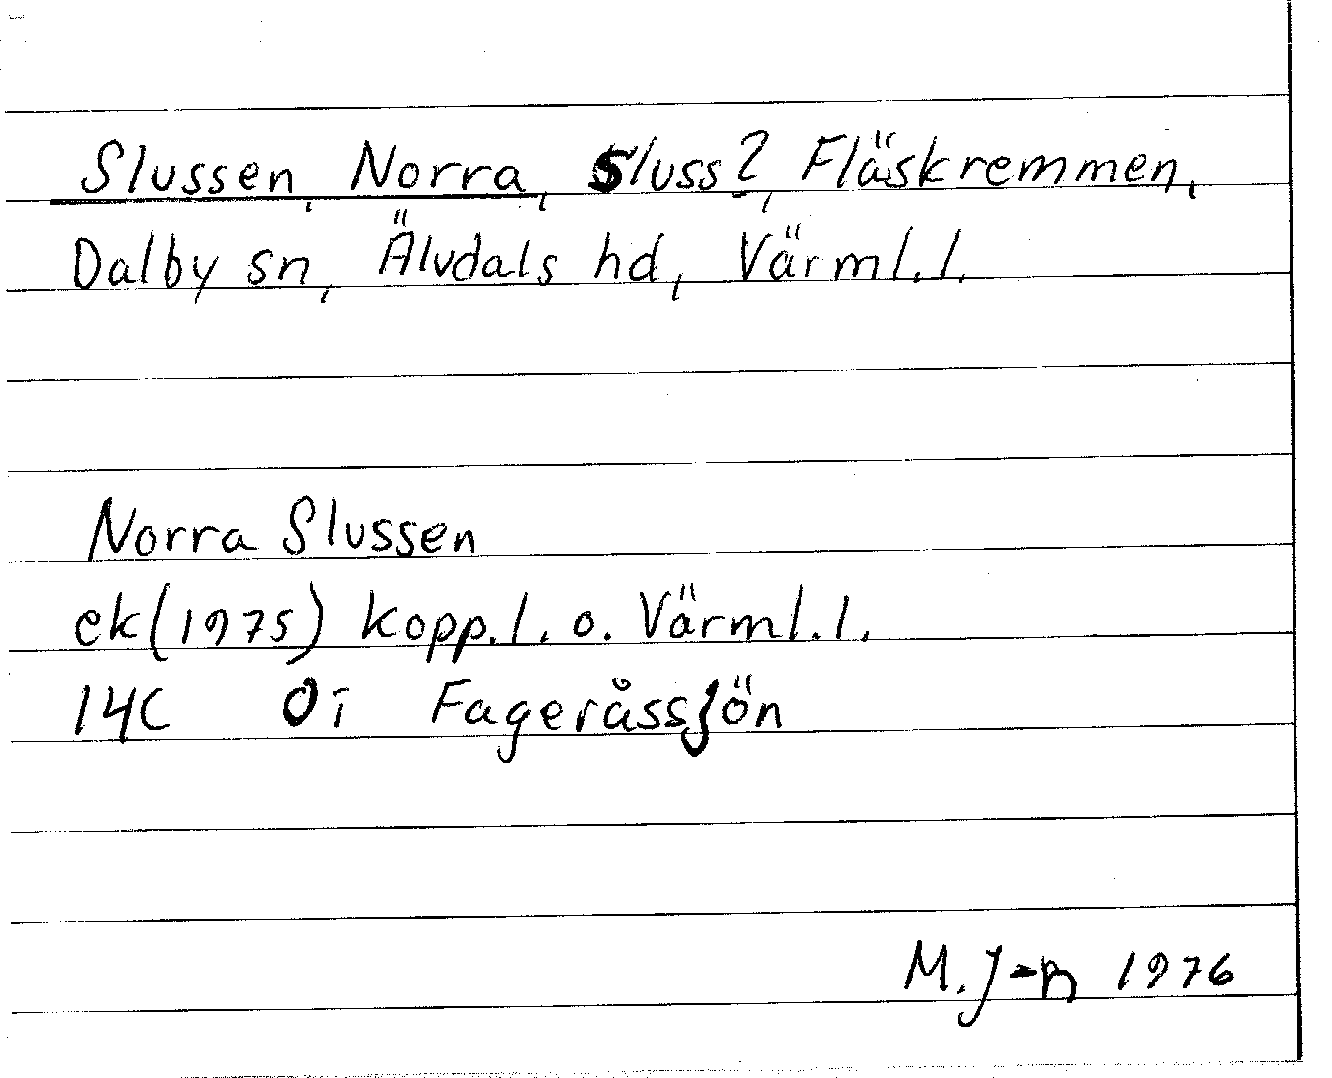 Slussen, Norra, Sluss?, Fläskremmen,
Dalby sn, Älvdals hd, Värml.l.
Norra Slussen
ek(1975) kopp.l. o. Värml.l.
14C 0i Fageråssjön
M.J-n 1976